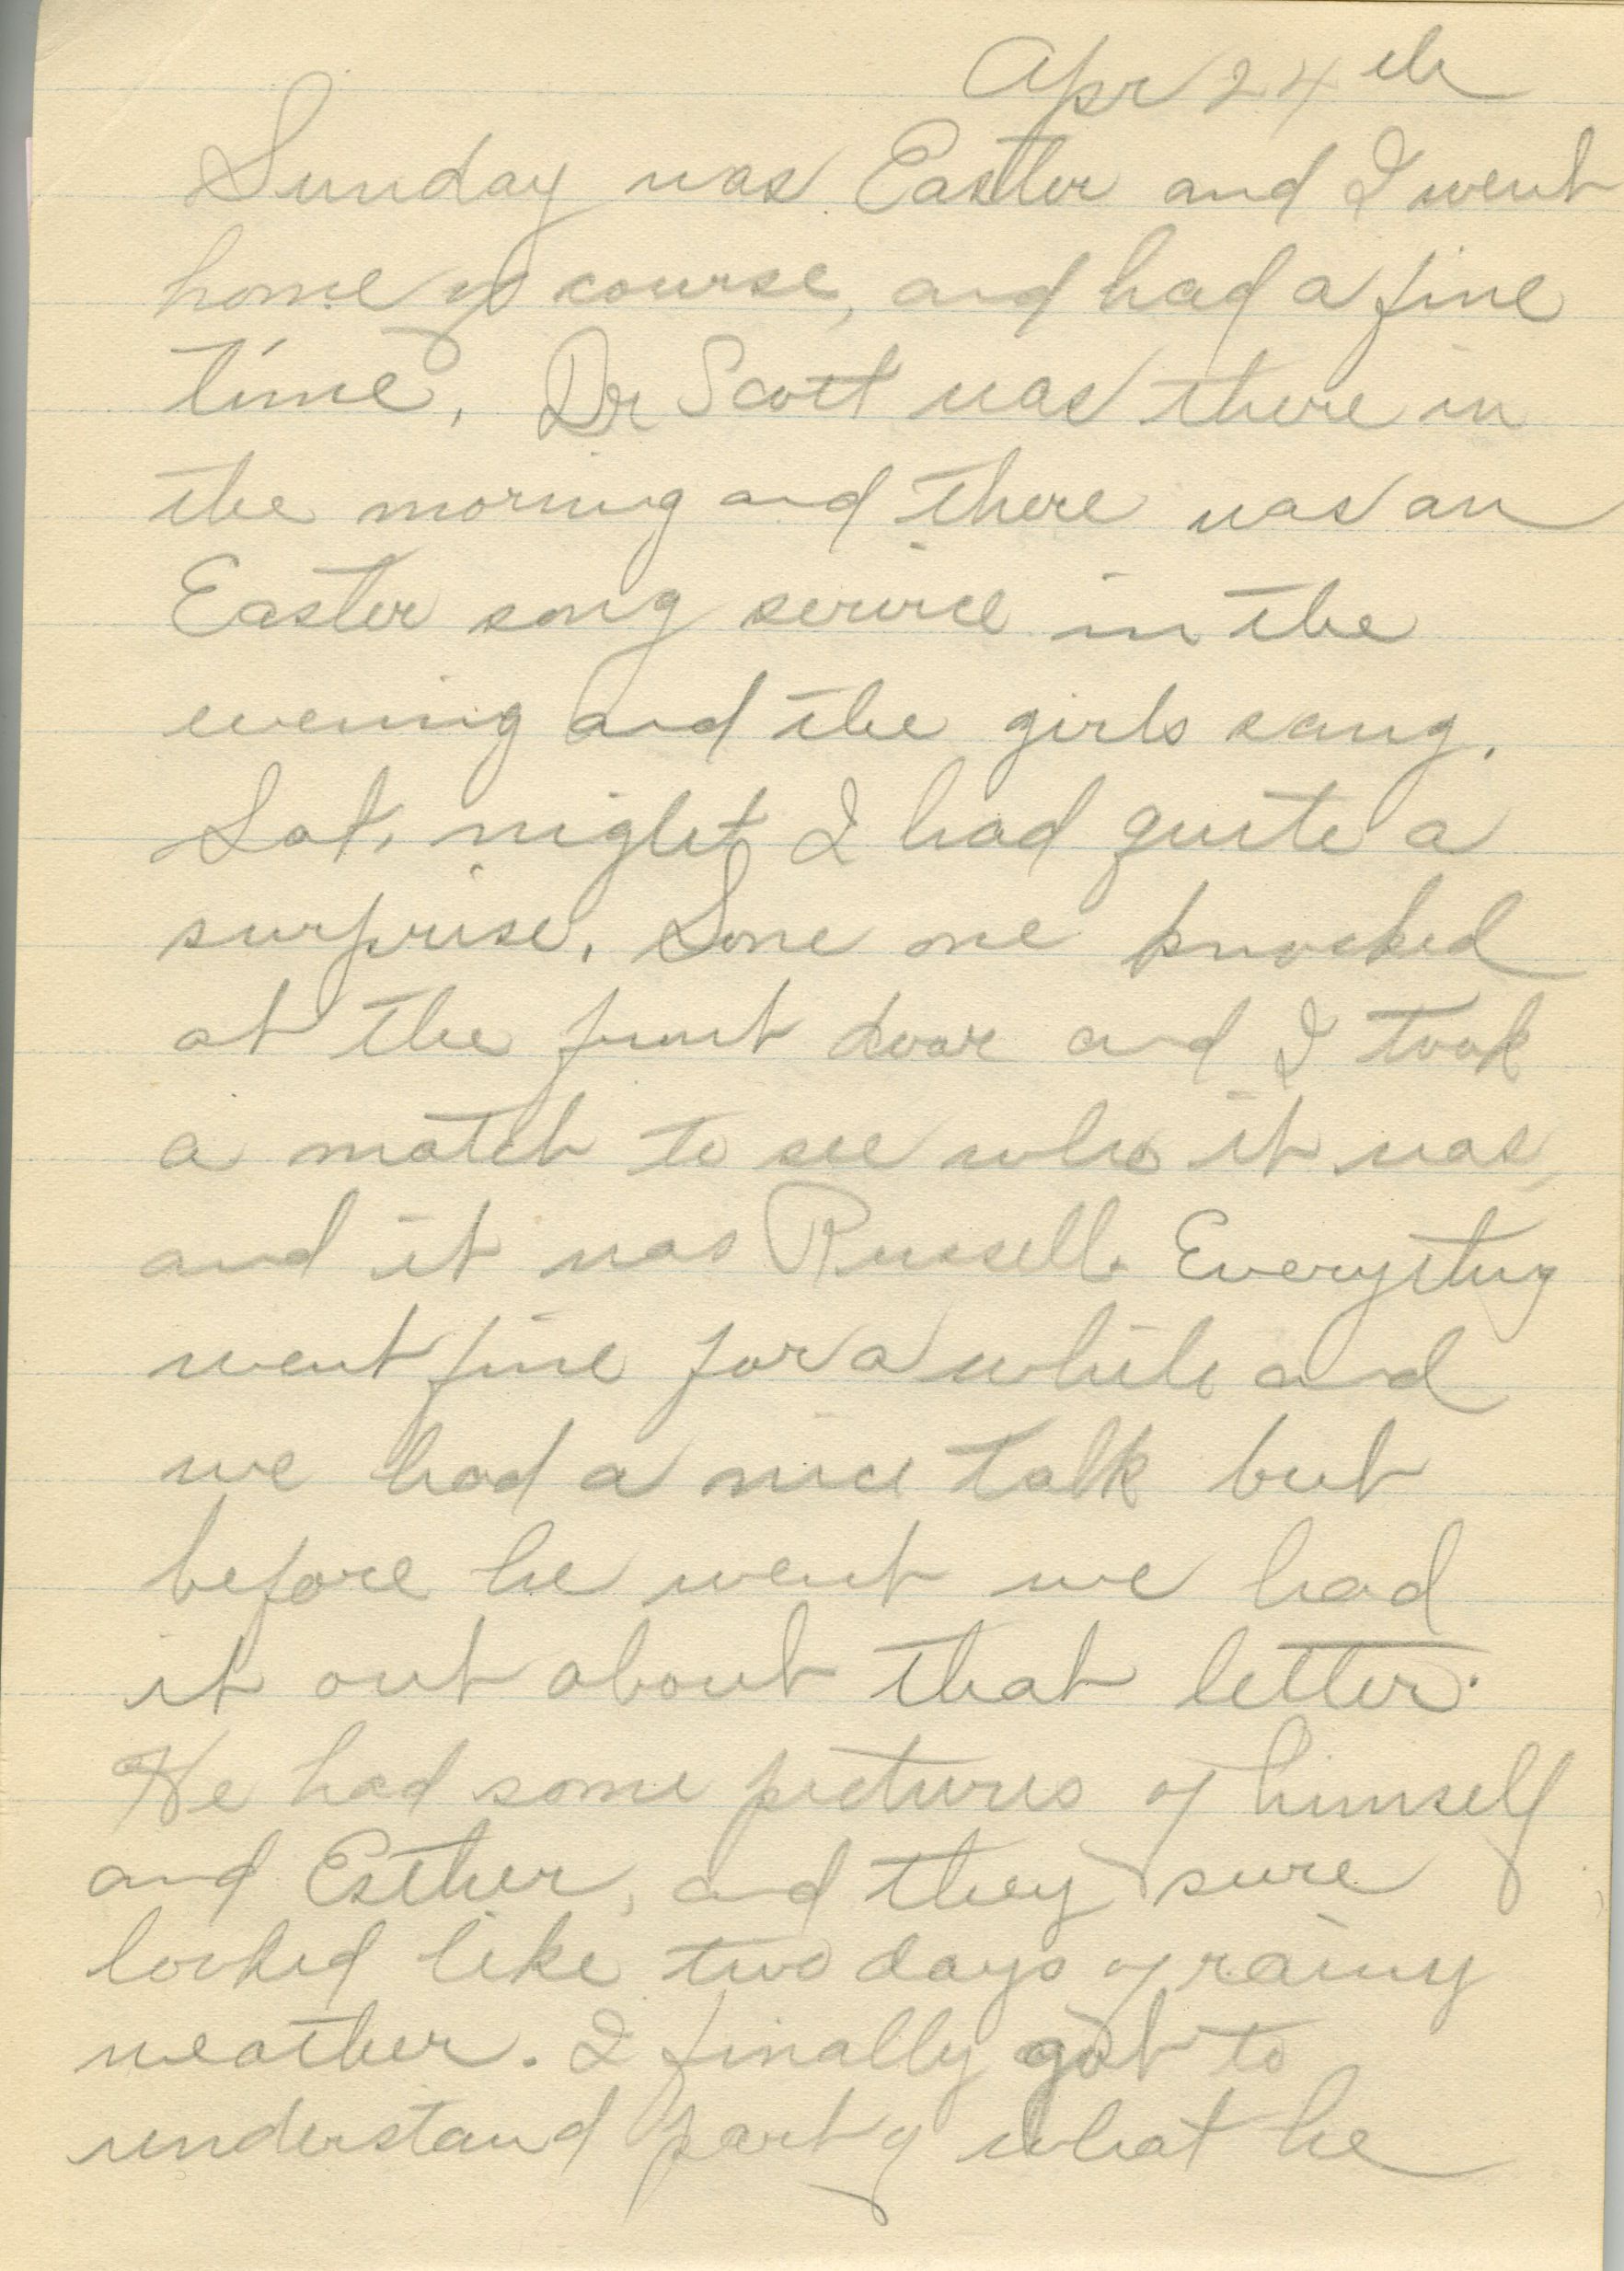 Apr 24th
Sunday was Easter and I went
home of course, and had a fine
time. Dr Scott was there in
the morning and there was an
Easter song service in the
evening and the girls sang.
Sat. night I had quite a
surprise. Some one knocked
at the front door and I took
a match to see who it was,
and it was Russell. Everything
went fine for a while and
we had a nice talk but
before he went we had
it out about that letter.
He had some pictures of himself
and Esther, and they sure
looked like two days of rainy
weather. I finally got to
understand part of what he